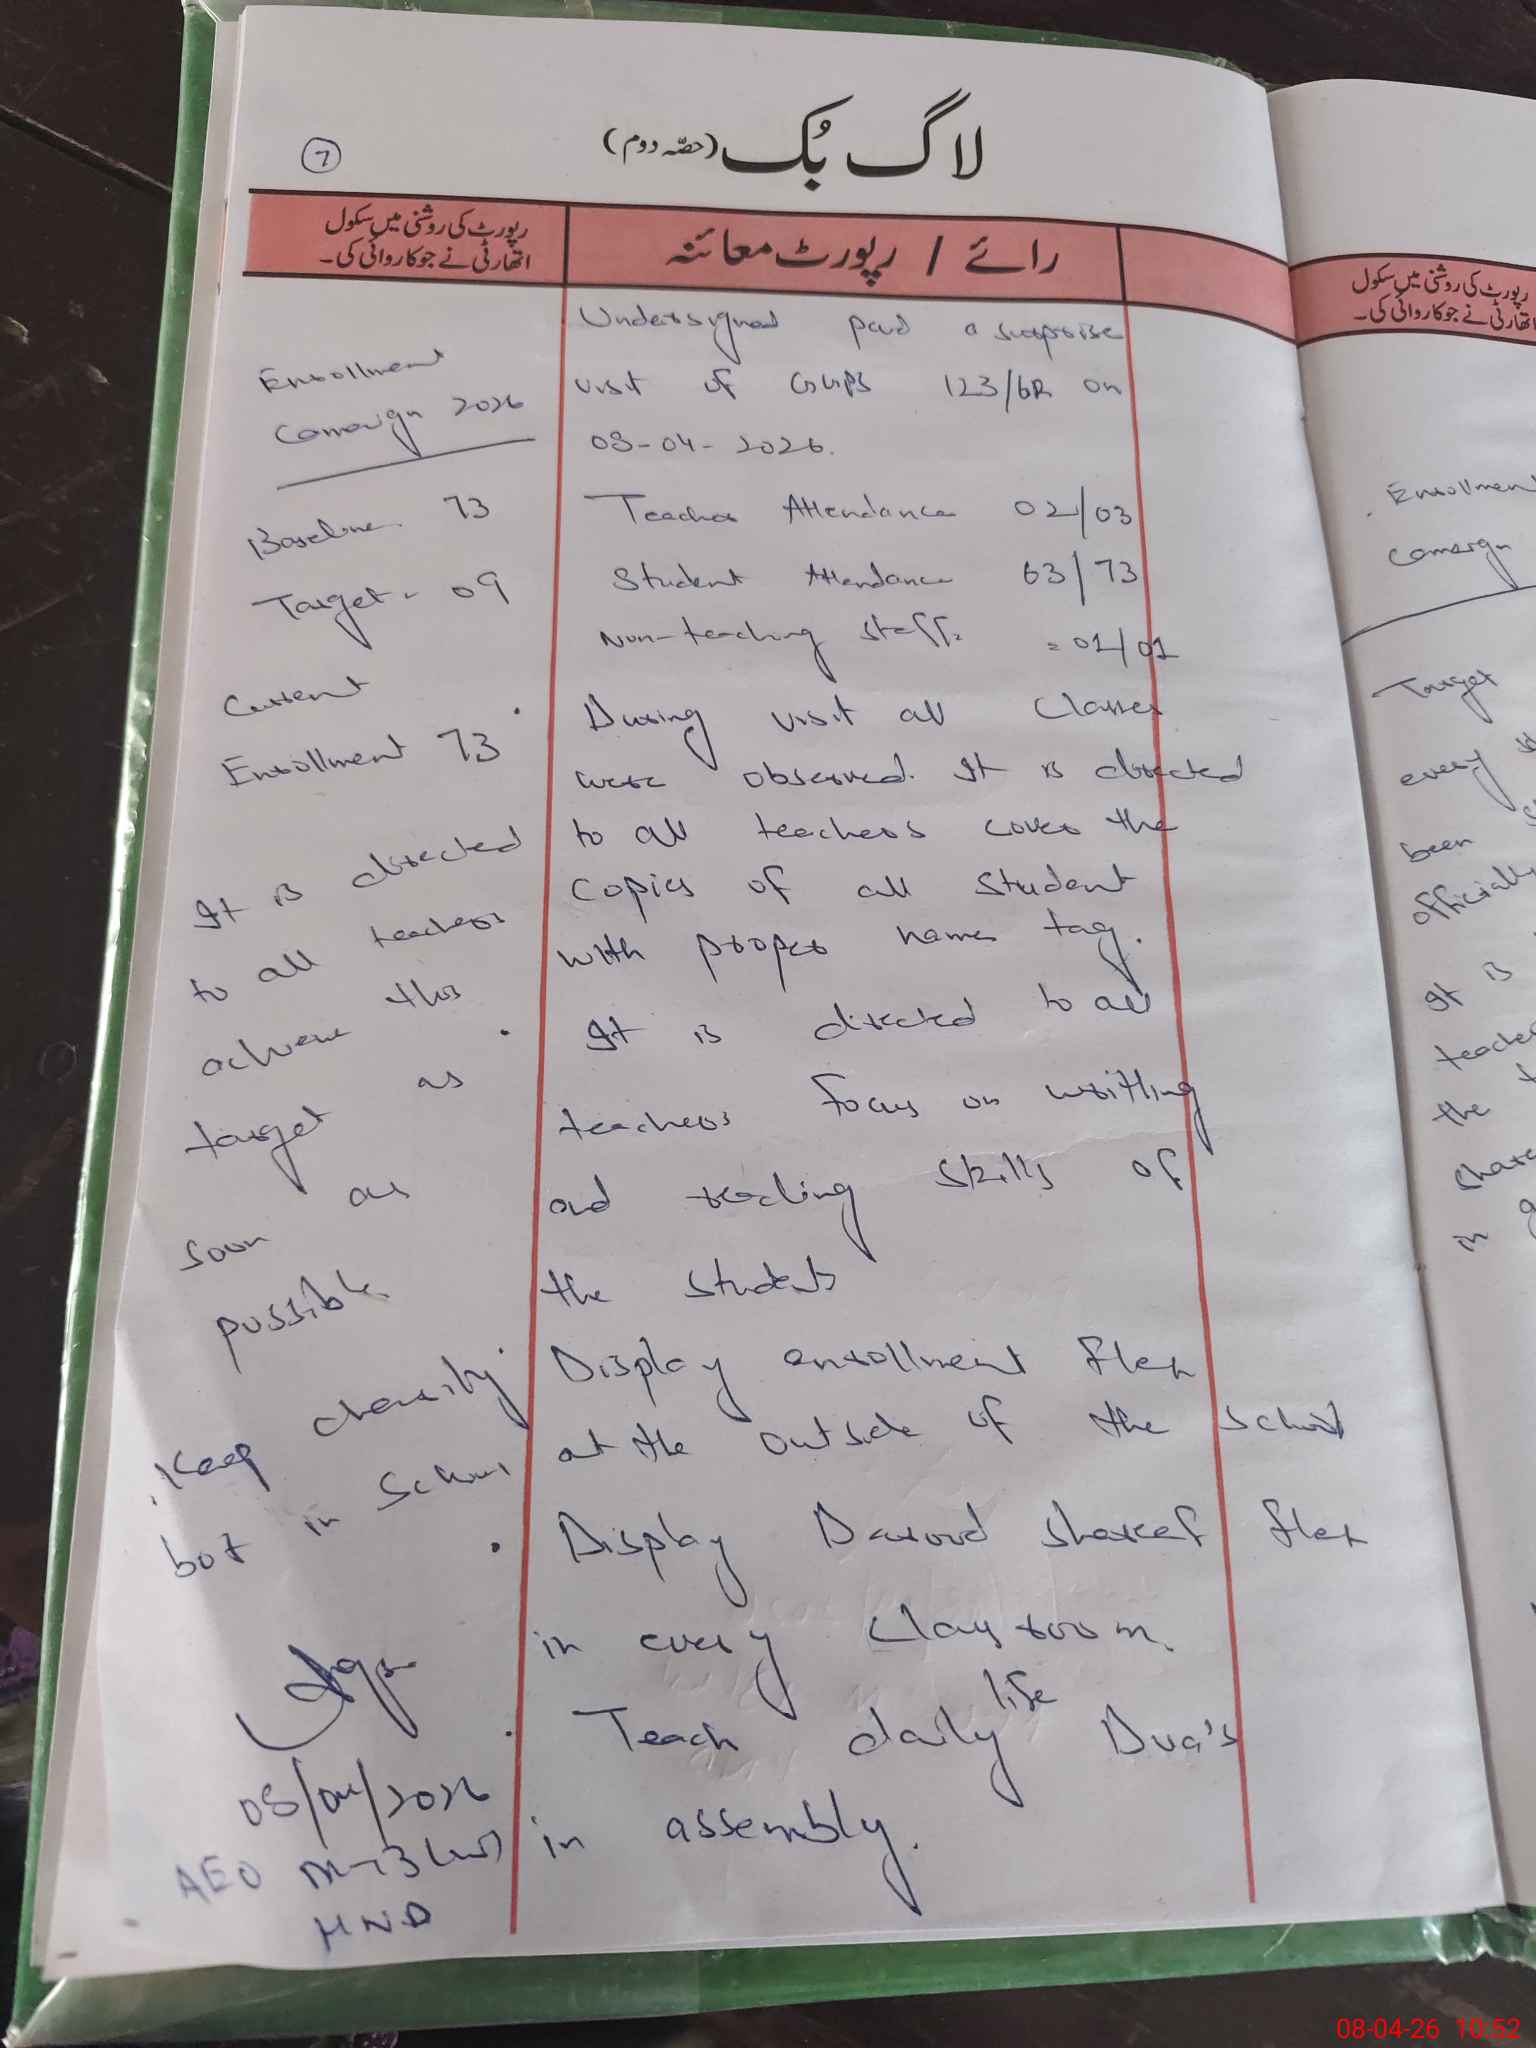 لاگ بُک (حصّہ دوم)
7
رپورٹ کی روشنی میں سکول
اتھارٹی نے جو کاروائی کی۔
رائے / رپورٹ معائنہ
Undersigned paid a surprise
visit of GGPS 123/6R on
08-04-2026.
Teacher Attendance 02/03
Student Attendance 63/73
Non-teaching staff = 01/01
. During visit all classes
were observed. It is directed
to all teachers cover the
copies of all student
with proper names tag.
. It is directed to all
teachers focus on writting
and reading skills of
the students
. Display enrollment flex
at the outside of the school
. Display Darood shareef flex
in every classroom.
. Teach daily life Dua's
in assembly.
Enrollment
Camaign 2026
Baseline 73
Target - 09
Current
Enrollment 73
It is directed
to all teachers
achieve this
target as
soon as
possible
. Keep charity
box in school
08/04/2026
AEO
MND
رپورٹ کی روشنی میں سکول
اتھارٹی نے جو کاروائی کی۔
. Enrollment
Camaign
Target
every
been
officially
It is
the
in
08-04-26 10:52